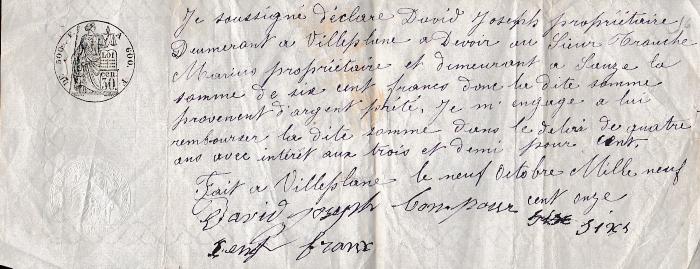 Je soussigné déclare David Joseph propriétaire
Demerant a Villeplane a Devoir au Sieur Tranche
Marius propriétaire et dimeurant a Sauze la
somme de six cent francs dont la dite somme
provenent d'argent prêté. Je m'engage a lui
rembourser la dite somme dans le delai de quatre
ans avec intérêt aux trois et demi pour cent.
Fait a Villeplane le neuf Octobre Mille neuf
cent onze
David Joseph bon pour six
cent franx
LOI
CEN.
50